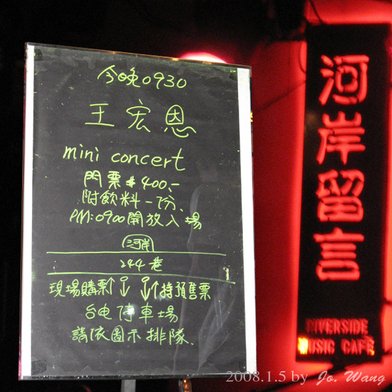 今晚0930
王宏恩
mini concert
門票$400.-
附飲料一份.
PM:0900開放入場
河岸
244巷
現場購票↑ ↓ ↓↑持預售票
台电停車場
請依圖示排隊.
河岸留言
RIVERSIDE
MUSIC CAFE
2008.1.5 by Jo. Wang